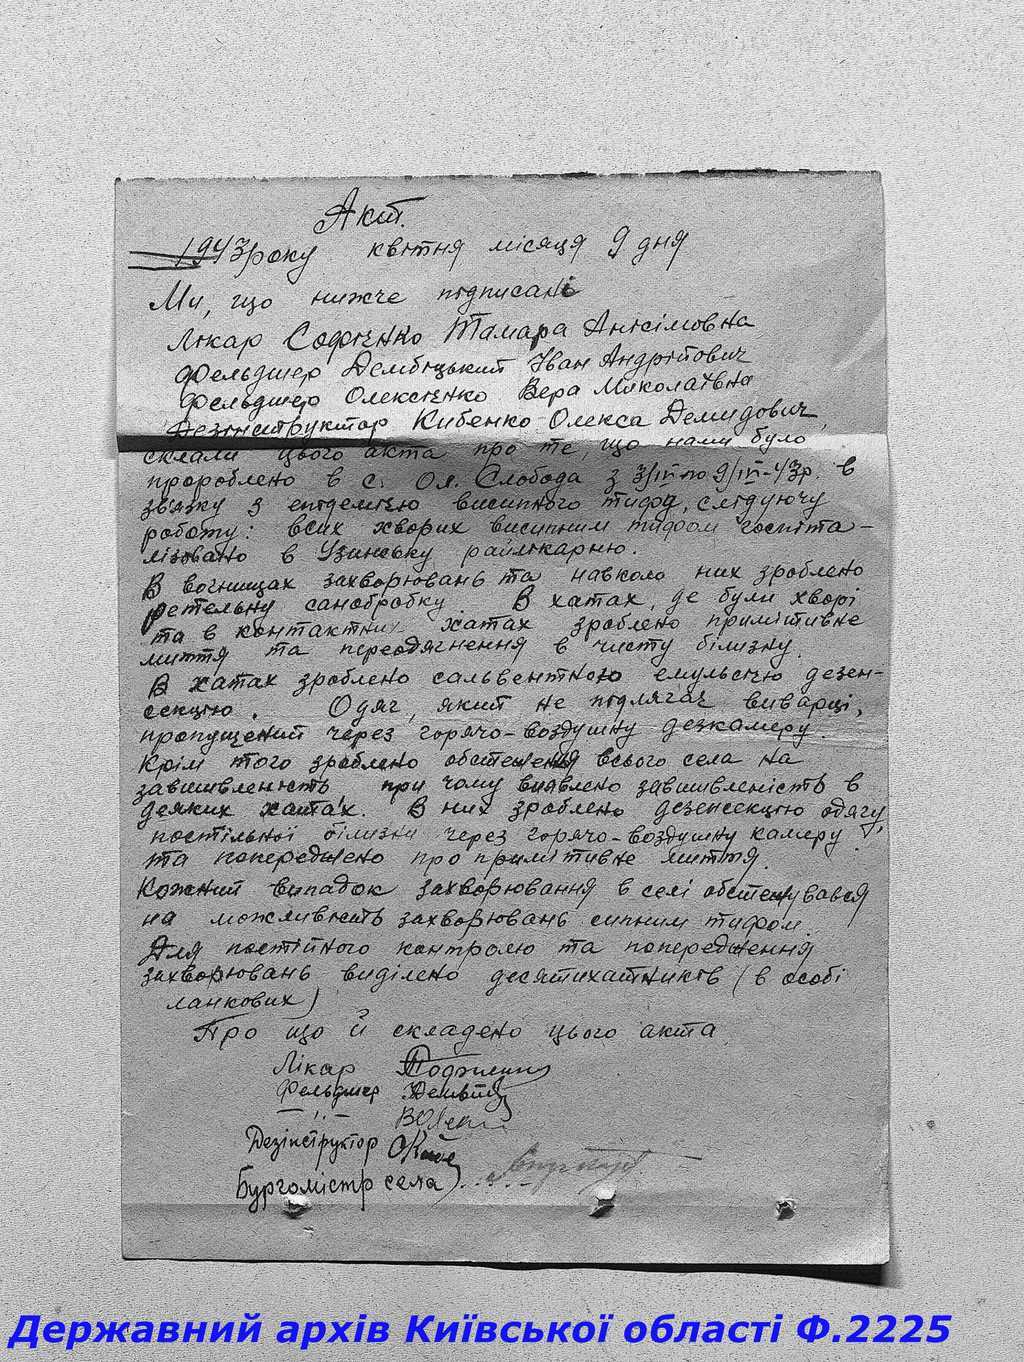 Акт.
1943 року квітня місяця 9 дня
Ми, що нижче підписані
Лікар Софієнко Тамара Анісімовна
Фельдшер Дембіцький Іван Андрійович
Фельдшер Олексієнко Вера Миколаївна
Дезінструктор Кибенко Олекса Демидович,
склали цього акта про те, що нами було
пророблено в с. Ол. Слобода з 3/IV по 9/IV-43р. в
зв'язку з епідемією висипного тифу, слідуючу
роботу: всих хворих висипним тифом госпіта-
лізовано в Узинську райлікарню.
В вогнищах захворювань та навколо них зроблено
ретельну санобробку. В хатах, де були хворі
та в контактних хатах зроблено примітивне
миття та переодягнення в чисту білизну.
В хатах зроблено сальвентною емульсією дезен-
секцію. Одяг, який не підлягає виварці,
пропущений через горячо-воздушну дезкамеру.
Крім того зроблено обстеження всього села на
завшивленість при чому виявлено завшивленість в
деяких хатах. В них зроблено дезенсекцію одягу,
постільної білизни через горячо-воздушну камеру
та попереджено про примітивне миття.
Кожний випадок захворювання в селі обстежувався
на можливість захворювань сипним тифом.
Для постійного контролю та попередження
захворювань виділено десятихатників (в особі
ланкових)
Про що й складено цього акта
Лікар
Фельдшер
— " —
Дезінструктор
Бургомістр села
Державний архів Київської області Ф.2225